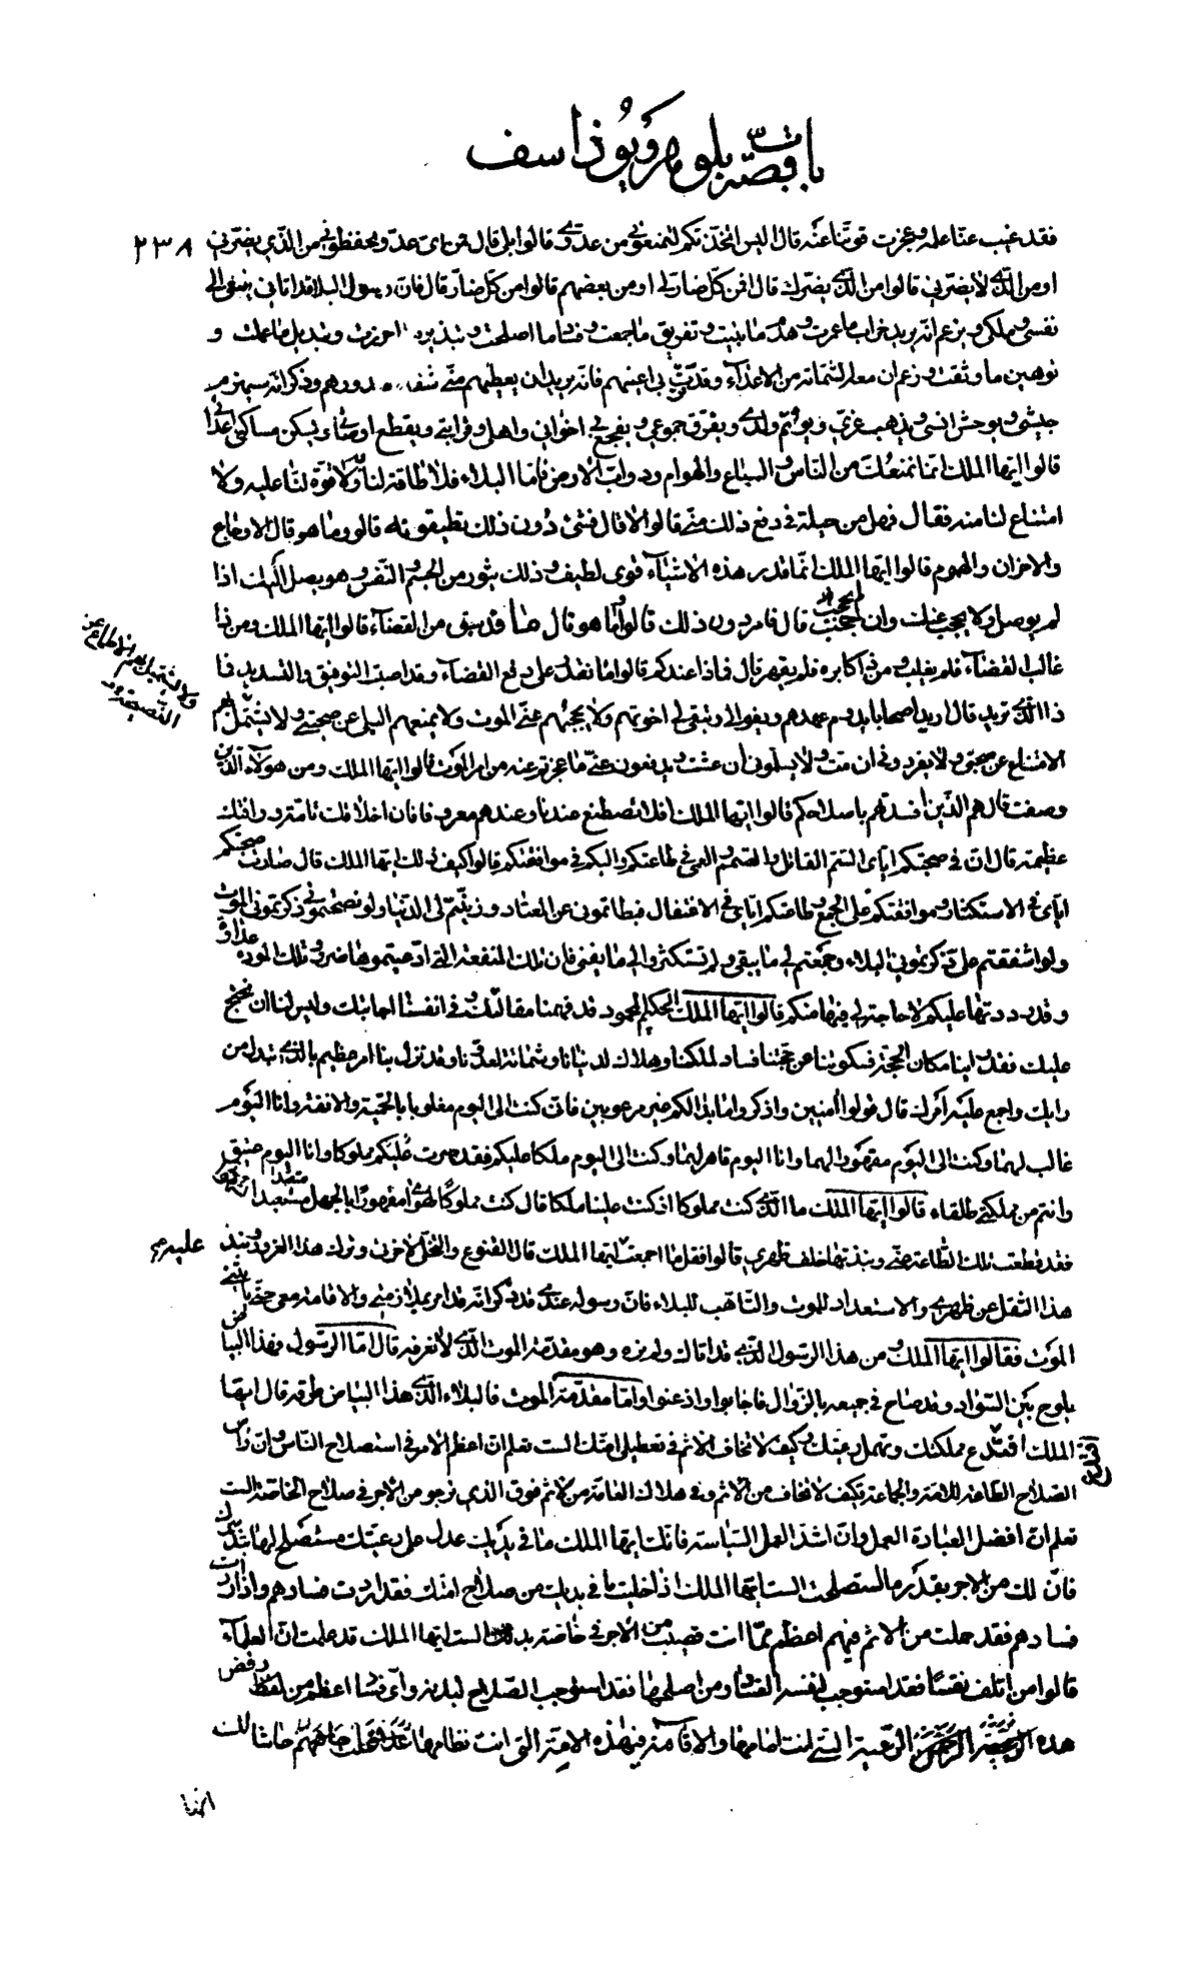 باقى قصّة بلوهر و يوذاسف
٢٣٨
فقد غيب عنّا علمه و عجزت قوتنا عنه قال اليس اتّخذتكم لتمنعونى من عدوّى قالوا بلى قال فمن اىّ عدوّ تحفظونى من الّذى يضرّنى
او من الّذى لا يضرّنى قالوا من الّذى يضرّك قال افمن كلّ ضار لى او من بعضهم قالوا من كلّ ضارّ قال فانّ رسول البلا قد اتانى ينعى الى
نفسى و ملكى و يزعم انّه يريد خراب ما عمرت و هدم ما بنيت و تفريق ما جمعت و فساد ما اصلحت و تبذير ما احرزت و تبديل ما عملت و
توهين ما وثقت و زعم ان معه الشماتة من الاعداء و قد قرّت بى اعينهم فانّه يريد ان يعطيهم منّى شفاء صدورهم و ذكر انّه سيهزم
جيشى و يوحش انسى و يذهب عزّى و يوتم ولدى و يفرّق جموعى و يفجع بى اخوانى و اهلى و قرابتى و يقطع اوصالى و يسكن مساكنى اعدائى
قالوا ايّها الملك انّما نمنعك من النّاس و السباع و الهوام و دوابّ الارض فامّا البلاء فلا طاقة لنا به و لا قوّة لنا عليه و لا
امتناع لنا منه فقال فهل من حيلة فى دفع ذلك منّى قالوا لا قال فشىء دون ذلك تطيقونه قالوا و ما هو قال الاوجاع
و الاحزان و الهموم قالوا ايّها الملك انّما قدر هذه الاشياء قوى لطيف و ذلك يثور من الجسم و النّفس و هو يصل اليك اذا
لم يوصل و لا يحجب عنك و ان حجب قال فامر دون ذلك قالوا و ما هو قال ما قد سبق من القضاء قالوا ايّها الملك و من ذا
غالب القضاء فلم يغلب و من ذا كابره فلم يقهر قال فماذا عندكم قالوا ما نقدر على دفع القضاء و قد اصبت التوفيق و التسديد فما
ذا الّذى تريد قال اريد اصحابا يدوم عهدهم و يفوا لى و تبقى لى اخوتهم و لا يحجبهم عنّى الموت و لا يمنعهم البلى عن صحبتى و لا يشتمل بهم
الامتناع عن صحبتى و لا يفردونى ان مت و لا يسلمونى ان عشت و يدفعون عنّى ما عجزتم عنه من امر الموت قالوا ايّها الملك و من هؤلاء الّذين
وصفت قال هم الّذين افسدتهم باصلاحكم قالوا ايّها الملك افلا تصطنع عندنا و عندهم معروفا فانّ اخلاقك تامّة و رافتك
عظيمة قال انّ فى صحبتكم ايّاى السّم القاتل و الصمم و العمى فى طاعتكم و البكم فى موافقتكم قالوا كيف ذلك ايّها الملك قال صارت صحبتكم
ايّاى فى الاستكثار و موافقتكم على الجمع و طاعتكم ايّاى فى الاغتفال فبطاتمونى عن المعاد و زيّنتم لى الدّنيا و لو نصحتمونى ذكرتمونى الموت
و لو اشفقتم علىّ ذكرتمونى البلاء و جمعتم لى ما يبقى و لم تستكثروا لى ما يفنى فانّ تلك المنفعة الّتى ادّعيتموها ضرر و تلك المودة عداوة
و قد رددتها عليكم لا حاجة لى فيها منكم قالوا ايّها الملك الحكيم المحمود قد فهمنا مقالتك و فى انفسنا اجابتك و ليس لنا ان نحتج
عليك فقد راينا مكان الحجّة فسكوتنا عن حجّتنا فساد لملكنا و هلاك لدنيانا و شماتة لعدوّنا و قد نزل بنا امر عظيم بالّذى تبدل من
رايك و اجمع عليه امرك قال قولوا امنين و اذكروا ما بدا لكم غير مرعوبين فانّى كنت الى اليوم مغلوبا بالحميّة و الانفة و انا اليوم
غالب لهما و كنت الى اليوم مقهورا لهما و انا اليوم قاهر لهما و كنت الى اليوم ملكا عليكم فقد صرت عليكم مملوكا و انا اليوم عتيق
و انتم من مملكتى طلقاء قالوا ايّها الملك ما الّذى كنت مملوكا اذ كنت علينا ملكا قال كنت مملوكا لهواى مقهورا بالجهل مستعبدا
فقد قطعت تلك الطّاعة عنّى و نبذتها خلف ظهرى قالوا فقل ما اجمعت عليه ايّها الملك قال القنوع و التّخلّى لاخرتى و ترك هذا الغرور و نبذ
هذا الثقل عن ظهرى و الاستعداد للموت و التّاهب للبلاء فانّ رسوله عندى قد ذكر انّه قد امر بملازمتى و الاقامة معى حتّى ياتينى
الموت فقالوا ايّها الملك و من هذا الرسول الّذى قد اتاك و لم نره و هو مقدّمة الموت الّذى لا نعرفه قال امّا الرّسول فهذا البياض
يلوح بين السّواد و قد صاح فى جميعه بالزّوال فاجابوا و اذعنوا و امّا مقدّمة الموت فالبلاء الّذى هذا البياض من طرقه قال ايّها
الملك افتدع مملكتك و تهمل رعيّتك و كيف لا تخاف الاثم فى تعطيل امّتك الست تعلم انّ اعظم الاجر فى استصلاح النّاس و انّ راس
الصّلاح الطّاعة للامّة و الجماعة فكيف لا تخاف من الاثم و فى هلاك العامّة من الاثم فوق الّذى ترجو من الاجر فى صلاح الخاصّة الست
تعلم انّ افضل العبادة العمل و انّ اشدّ العمل السّياسة فانّك ايّها الملك ما فى يديك عدل على رعيّتك مستصلح لها بتدبيرك
فانّ لك من الاجر بقدر ما استصلحت الست ايّها الملك اذا خليت ما فى يديك من صلاح امّتك فقد اردت فسادهم و اذا اردت
فسادهم فقد حملت من الاثم فيهم اعظم ممّا انت مصيب من الاجر فى خاصّة يديك الست ايّها الملك قد علمت انّ العلماء
قالوا من اتلف نفسا فقد استوجب لنفسه الفساد و من اصلحها فقد استوجب الصّلاح لبدنه و اىّ فساد اعظم من رفض
هذه الرّعيّة الّتى انت امامها و الاقامة فى هذه الامّة الّتى انت نظامها حاشا لك
ايّها